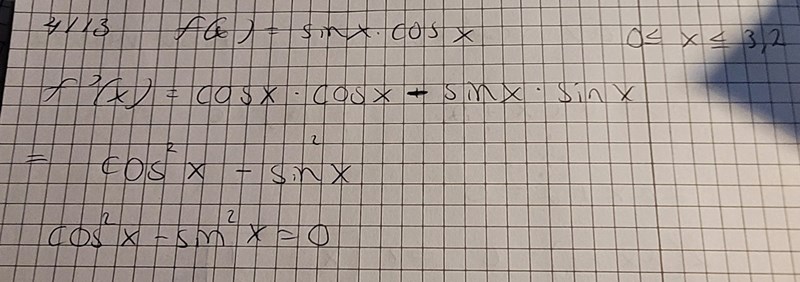 4113 f(x) = sinx · cos x 0 ≤ x ≤ 3,2
f'(x) = cosx · cosx - sinx · sinx
= cos²x - sin²x
cos²x - sin²x = 0